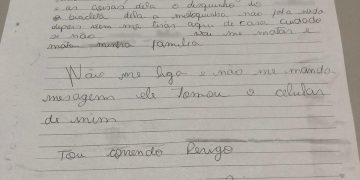 e as coisas dela o desquinho do
a bicicleta dela a motoquinha não fala nada
depois vem me tirar aqui de casa cuidado
se não vou me matar e
matar minha familia
Não me liga e não me manda
mesagem ele tomou o celular
de mim
Tou correndo Perigo